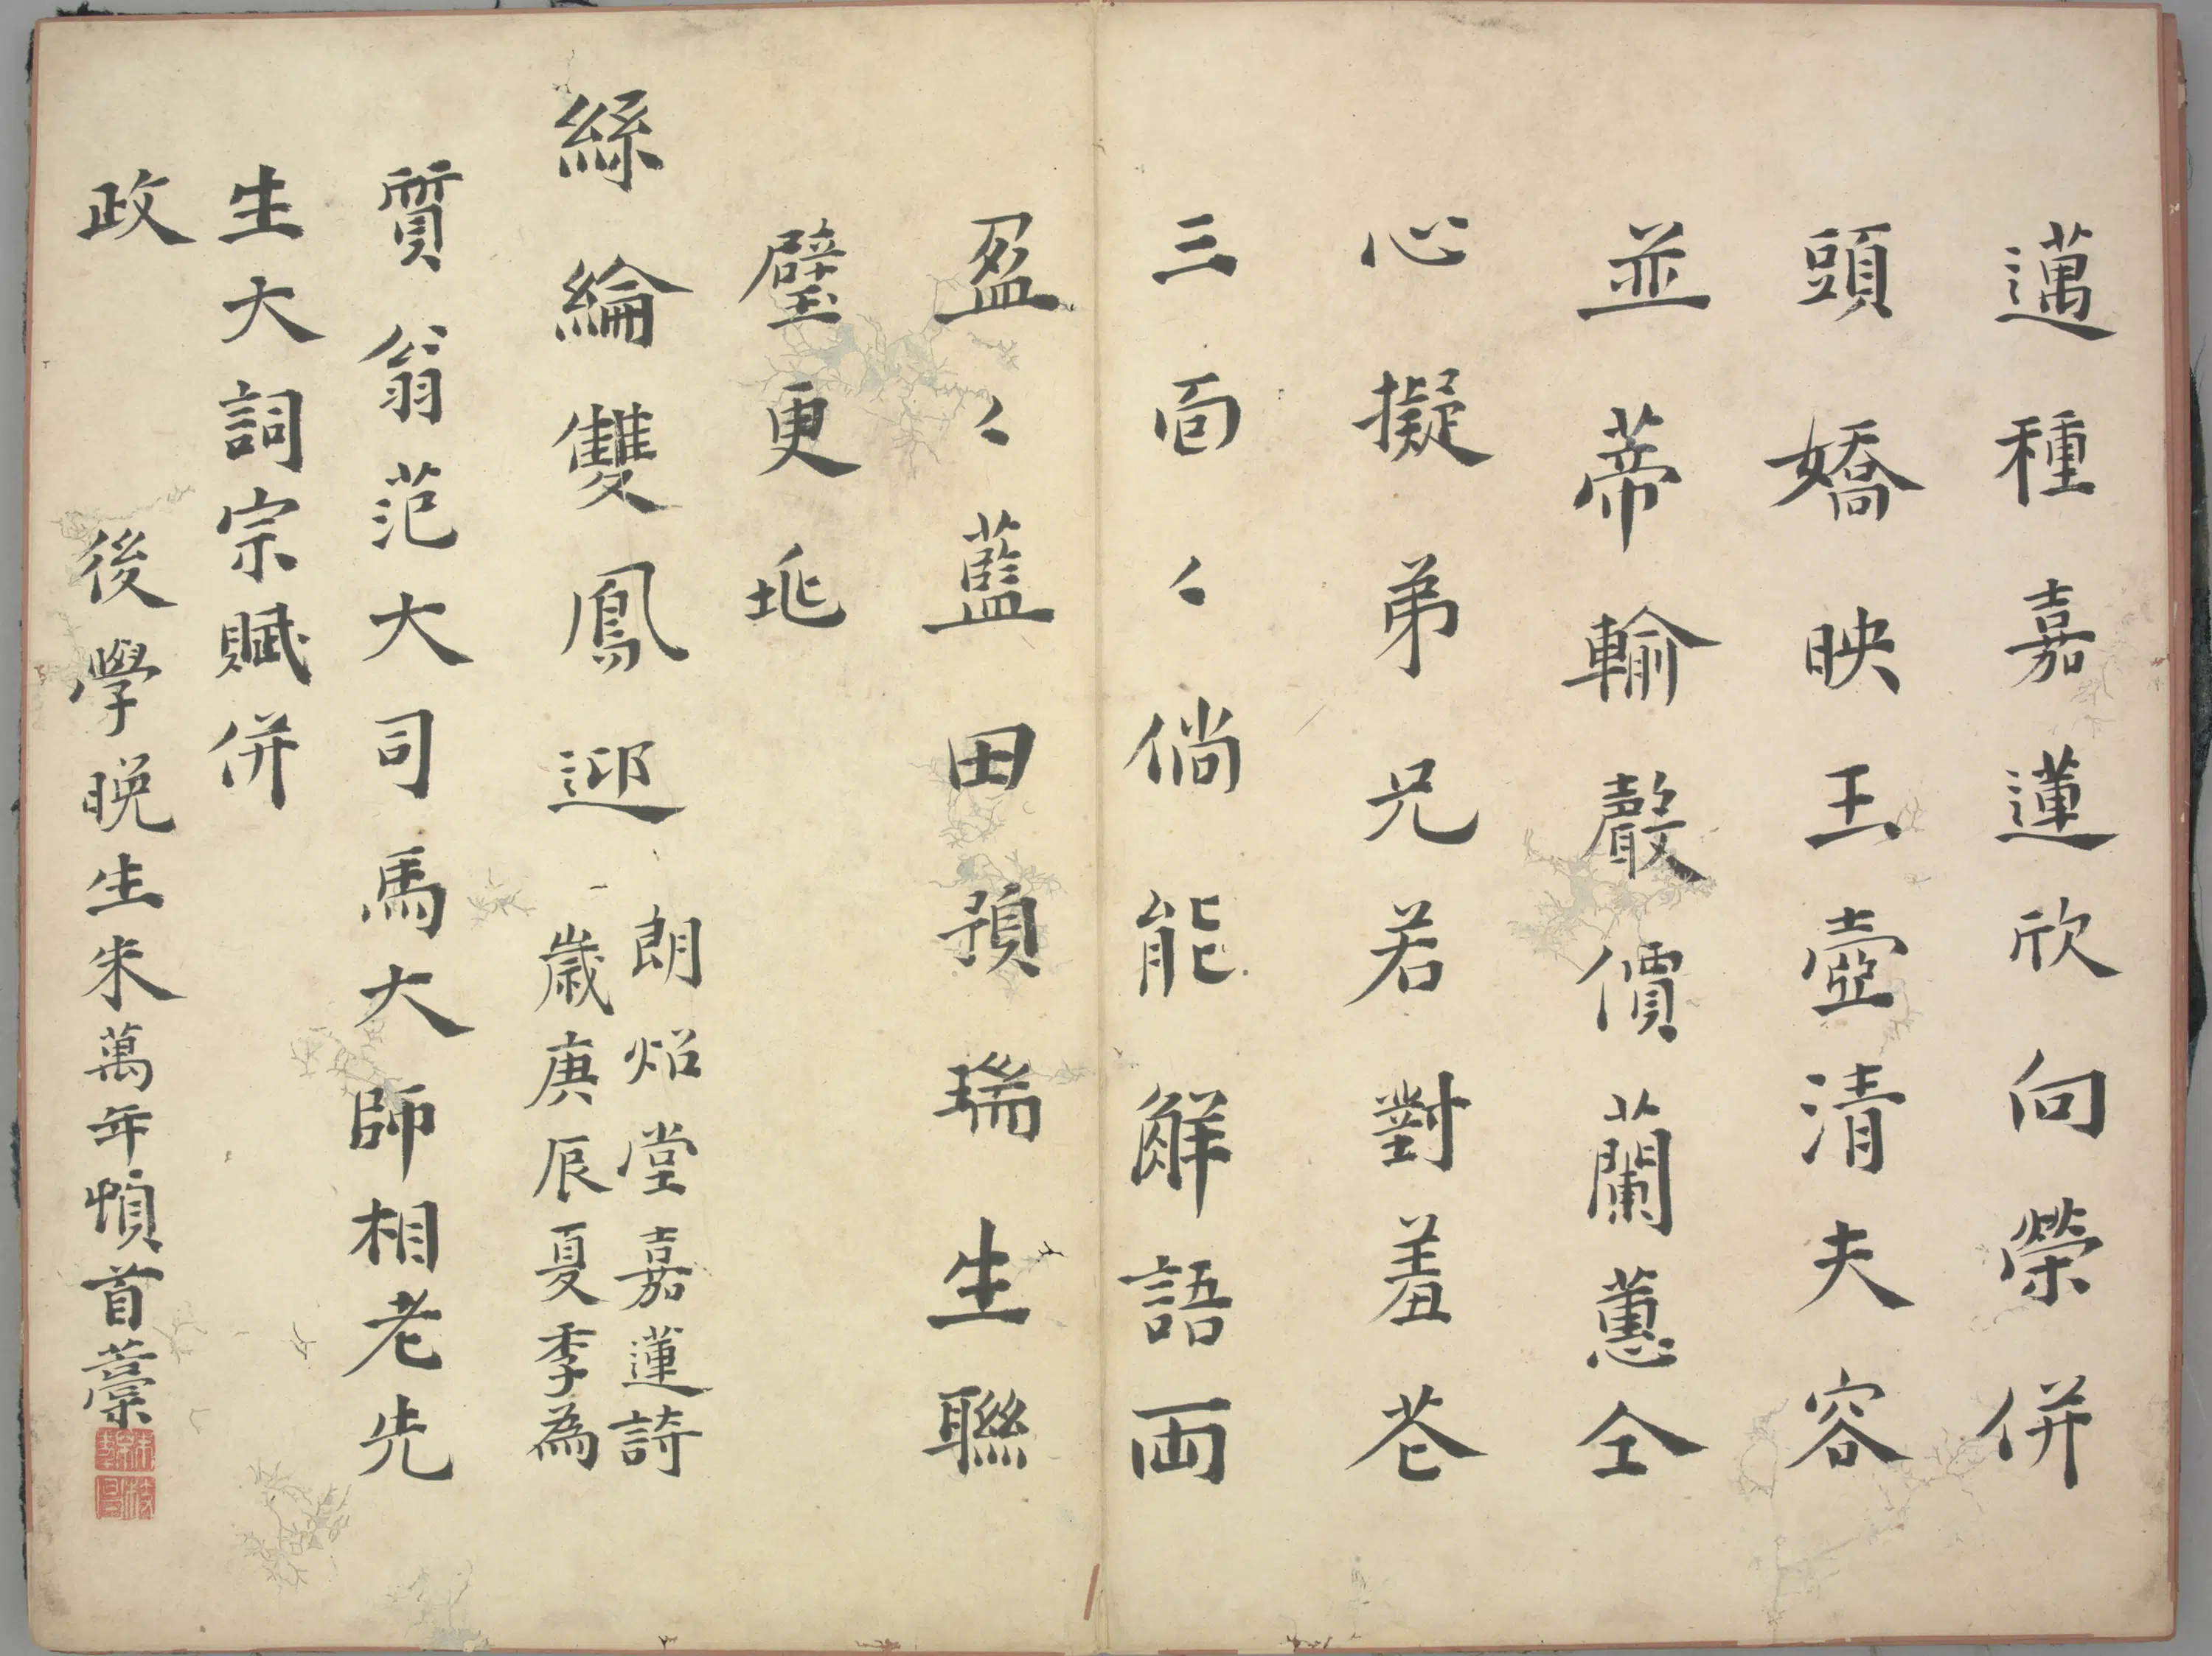 邁種嘉蓮欣向榮併
頭嬌映玉壺清夫容
並蒂輸聲價蘭蕙仝
心擬弟兄若對羞苍
三面〻倘能解語兩
盈〻藍田預瑞生聯
璧更兆
絲綸雙鳳迎
朗炤堂嘉蓮詩
歲庚辰夏季為
質翁范大司馬大師相老先
生大詞宗賦併
政
後學晚生朱萬年頓首藁